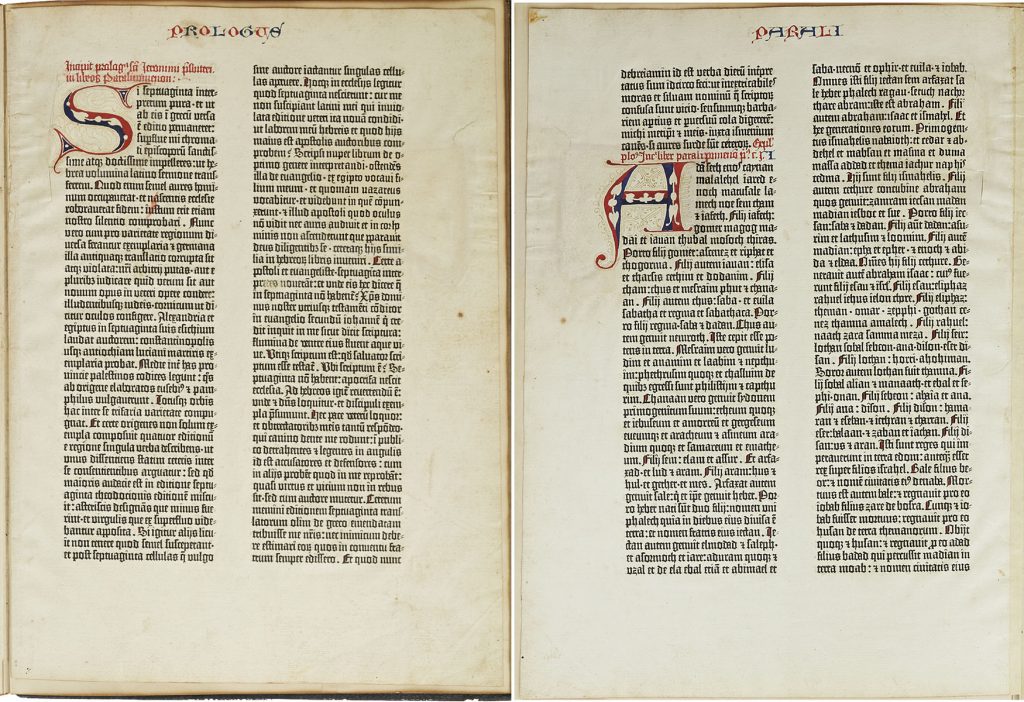 PROLOGUS
Incipit prologus sancti Jeronimi presbiteri
in libros Paralipomenon :
Si septuaginta inter-
pretum pura · et ut
ab eis ī grecū versa
ē editio permaneret:
supflue mi chroma-
ti episcoporū sancti-
sime atq; doctissime impelleres: ut he-
brea volumina latino sermone trans-
ferrem. Quod enim semel aures homi-
num occupauerat · et nascentis ecclesie
roborauerat fidem: iustum erat etiam
nostro silentio comprobari. Nunc
vero cum pro varietate regionum di-
uersa ferantur exemplaria et germana
illa antiquaq; translatio corrupta sit
atq; violata: nr̄i arbitrij putas · aut e
pluribus iudicare quid verum sit aut
nouum opus in veteri opere condere:
illudentibusq; iudeis · cornicum ut di-
citur oculos configere. Alexandria et
egiptus in septuaginta suis esichium
laudat auctorem: constantinopolis
usq; antiochiam luciani martiris ex-
emplaria probat. Medie int̄ has pro-
uincie palestinos codices legunt: q̄s
ab origene elaboratos eusebi⁹ et pam-
philus vulgauerunt. Totusq; orbis
hac inter se trifaria varietate compu-
gnat. Et certe origenes non solum ex-
empla composuit quatuor editionū
e regione singula verba describens · ut
unus dissentiens statim ceteris inter
se consentientibus arguatur: sed qd̄
maioris audacie est in editione septu-
aginta theodotionis editionē miscu-
it: asteriscis designās que minus fue-
rint · et virgulis que ex superfluo vide-
bantur apposita. Si igitur alijs licu-
it non tenere quod semel susceperant ·
et post septuaginta cellulas q̄ vulgo
sine auctore iactantur singulas cellu-
las aperuere. Hocq; in ecclesijs legitur
quod septuaginta nescierunt: cur me
non suscipiant latini mei qui inuio-
lata editione veteri ita nouā condidi
ut laborem meū hebreis et quod hijs
maius est apostolis auctoribus com-
probem: Scripsi nuper librum de o-
ptimo genere interpretandi · ostendēs
illa de euangelio · ex egipto vocaui fi-
lium meum · et quoniam nazareus
vocabitur · et videbunt in quē cōpun-
xerunt · et illud apostoli quod oculus
nō vidit nec auris audiuit et in cor ho-
minis non ascenderunt que preparauit
deus diligentib⁹ se · ceteraq; hijs simi-
lia in hebreorū libris inueniri. Certe a-
postoli et euangeliste · septuaginta inter-
pretes nouerāt: et unde eis hec dicere que
in septuaginta nō habent̄? Xp̄s domi-
nus noster utriusq; testamēti cōditor
in euangelio secundū iohannē q̄ cre-
dit inquit in me sicut dicit scriptura:
flumina de ventre eius fluent aque vi-
ue. Utiq; scriptum est: qd̄ saluator scri-
ptum esse testat̄. Ubi scriptum ē? Se-
ptuaginta nō habent: apocrifa nescit
ecclesia. Ad hebreos igit̄ reuertendū ē:
unde et dn̄s loquitur · et discipuli exem-
pla presumunt. Hec pace veterū loquor:
et obtrectatoribus meis tantū respōdeo ·
qui canino dente me rodunt: ī publi-
co detrahentes et legentes in angulis
id est accusatores et defensores: cum
in alijs probēt quod in me reprobāt:
quasi virtus et vitium non in rebus
sit · sed cum auctore mutetur. Ceterum
memini editionem septuaginta trans-
latorum olim de greco emendatam
tribuisse me nr̄is: nec inimicum debe-
re estimari eorū quos in conuentu fra-
trum semper edissero. Et quod nunc
PARALI
debreiamin id est verba dierū interpre-
tatus sum idcirco feci: ut inextricabiles
moras et siluam nominū que scriptorū
confusa sunt vitio · sensuumq; barba-
riem apertius et per versuū cola digererē:
michi metipsi et meis · iuxta ismenium
canēs · si aures surde sūt ceterorum. Expl'
plo'. Inc' liber paralipomenon p̄'. c'. I. I
Adam seth enos caynan
malalehel iared e-
noch matusale la-
mech noe sem cham
et iafeth. Filij iafeth:
gomer magog ma-
dai et iauan thubal mosoch thiras.
Porro filij gomer: ascenez et riphat et
thogorma. Filij autem iauan: elisa
et tharsis cethim et dodanim. Filij
cham: chus et mesraim phut et chana-
an. Filij autem chus: saba · et euila
sabatha et regma et sabathaca. Por-
ro filij regma · saba et dadan. Chus au-
tem genuit nemroth. Iste cepit esse po-
tens in terra. Mesraim vero genuit lu-
dim et anamim et laabim et nepthu-
im: phethrusim quoq; et chasluim de
quibus egressi sunt philistijm et capthu-
rim. Chanaan vero genuit sydonem
primogenitum suum: etheum quoq;
et iebuseum et amorreū et gergeseum
eueumq; et aracheum et asineum ara-
dium quoq; et samareum et emathe-
um. Filij sem: elam et assur. Et arfa-
xad et lud et aram. Filij aram: hus et
hul et gether et mes. Arfaxat autem
genuit sale: q̄ et ip̄e genuit heber. Por-
ro heber nati sūt duo filij: nomen uni
phalech quia in diebus eius diuisa ē
terra: et nomen fratris eius iectan. Ie-
ctan autem genuit elmodad et saleph ·
et asermoth et iare: aduram quoq; et
uzal et de cla ebal etiā et abimael et
saba · necnō et ophir · et euila · et iobab.
Omnes isti filij iectan sem arfaxat sa-
le heber phalech ragau · seruch nacho-
thare abram: iste est abraham. Filij
autem abraham: isaac et ismahel. Et
hee generationes eorum. Primogeni-
tus ismahelis nabaioth: et cedar et ab-
dehel et mabsan et masma et duma
massa added et thema iachur naphis
cedma. Hij sunt filij ismahelis. Filij
autem cethure concubine abraham
quos genuit: zamram iecsan madan
madian iesboc et sue. Porro filij iec-
san: saba et dadan. Filij aut̄ dadan: asu-
rim et lathusim et loomim. Filij autē
madian: epha et epher et enoch et abi-
da et eldaa. Om̄es hij filij cethure. Ge-
nerauit autē abraham isaac: cui⁹ fue-
runt filij esau et isrl̄. Filij esau: eliphaz
rahuel iehus ielon chore. Filij eliphaz:
theman · omar · zepphi · gothan ce-
nez thamna amalech. Filij rahuel:
naath zara samma meza. Filij seir:
lothan sobal sebeon · ana · dison · eser di-
san. Filij lothan: horri · ahohiman.
Soror autem lothan fuit thamna. Fi-
lij sobal alian et manaath · et ebal et se-
phi · onan. Filij sebeon: ahaia et ana.
Filij ana: dison. Filij dison: hama-
ran et eseban · et iethran et charan. Filij
eser: balaan · et zaban et iachan. Filij di-
san: us et aran. Isti sunt reges qui im-
perauerunt in terra edom: anteq̄ esset
rex super filios israhel. Bale filius be-
or: et nomē ciuitatis ei⁹ denaba. Mor-
tuus est autem bale: et regnauit pro eo
iobab filius zare de bosra. Cumq; et io-
bab fuisset mortuus: regnauit pro eo
husan de terra themanorum. Obijt
quoq; et husan: et regnauit pro eo adad
filius badad qui percussit madian in
terra moab: et nomen ciuitatis eius